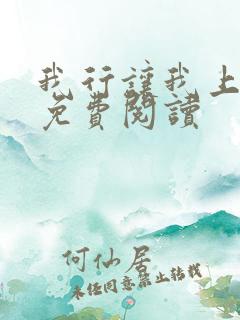 我行讓我上
免費閱讀
何仙居
未经同意禁止转载